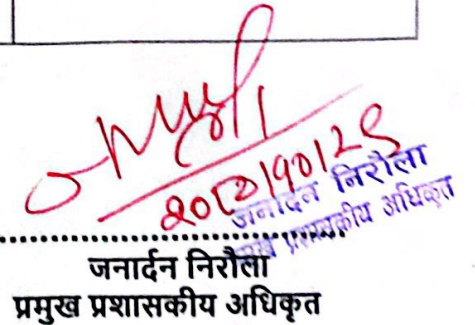 जनार्दन निरौला
प्रमुख प्रशासकीय अधिकृत
जनार्दन निरौला
प्रमुख प्रशासकीय अधिकृत